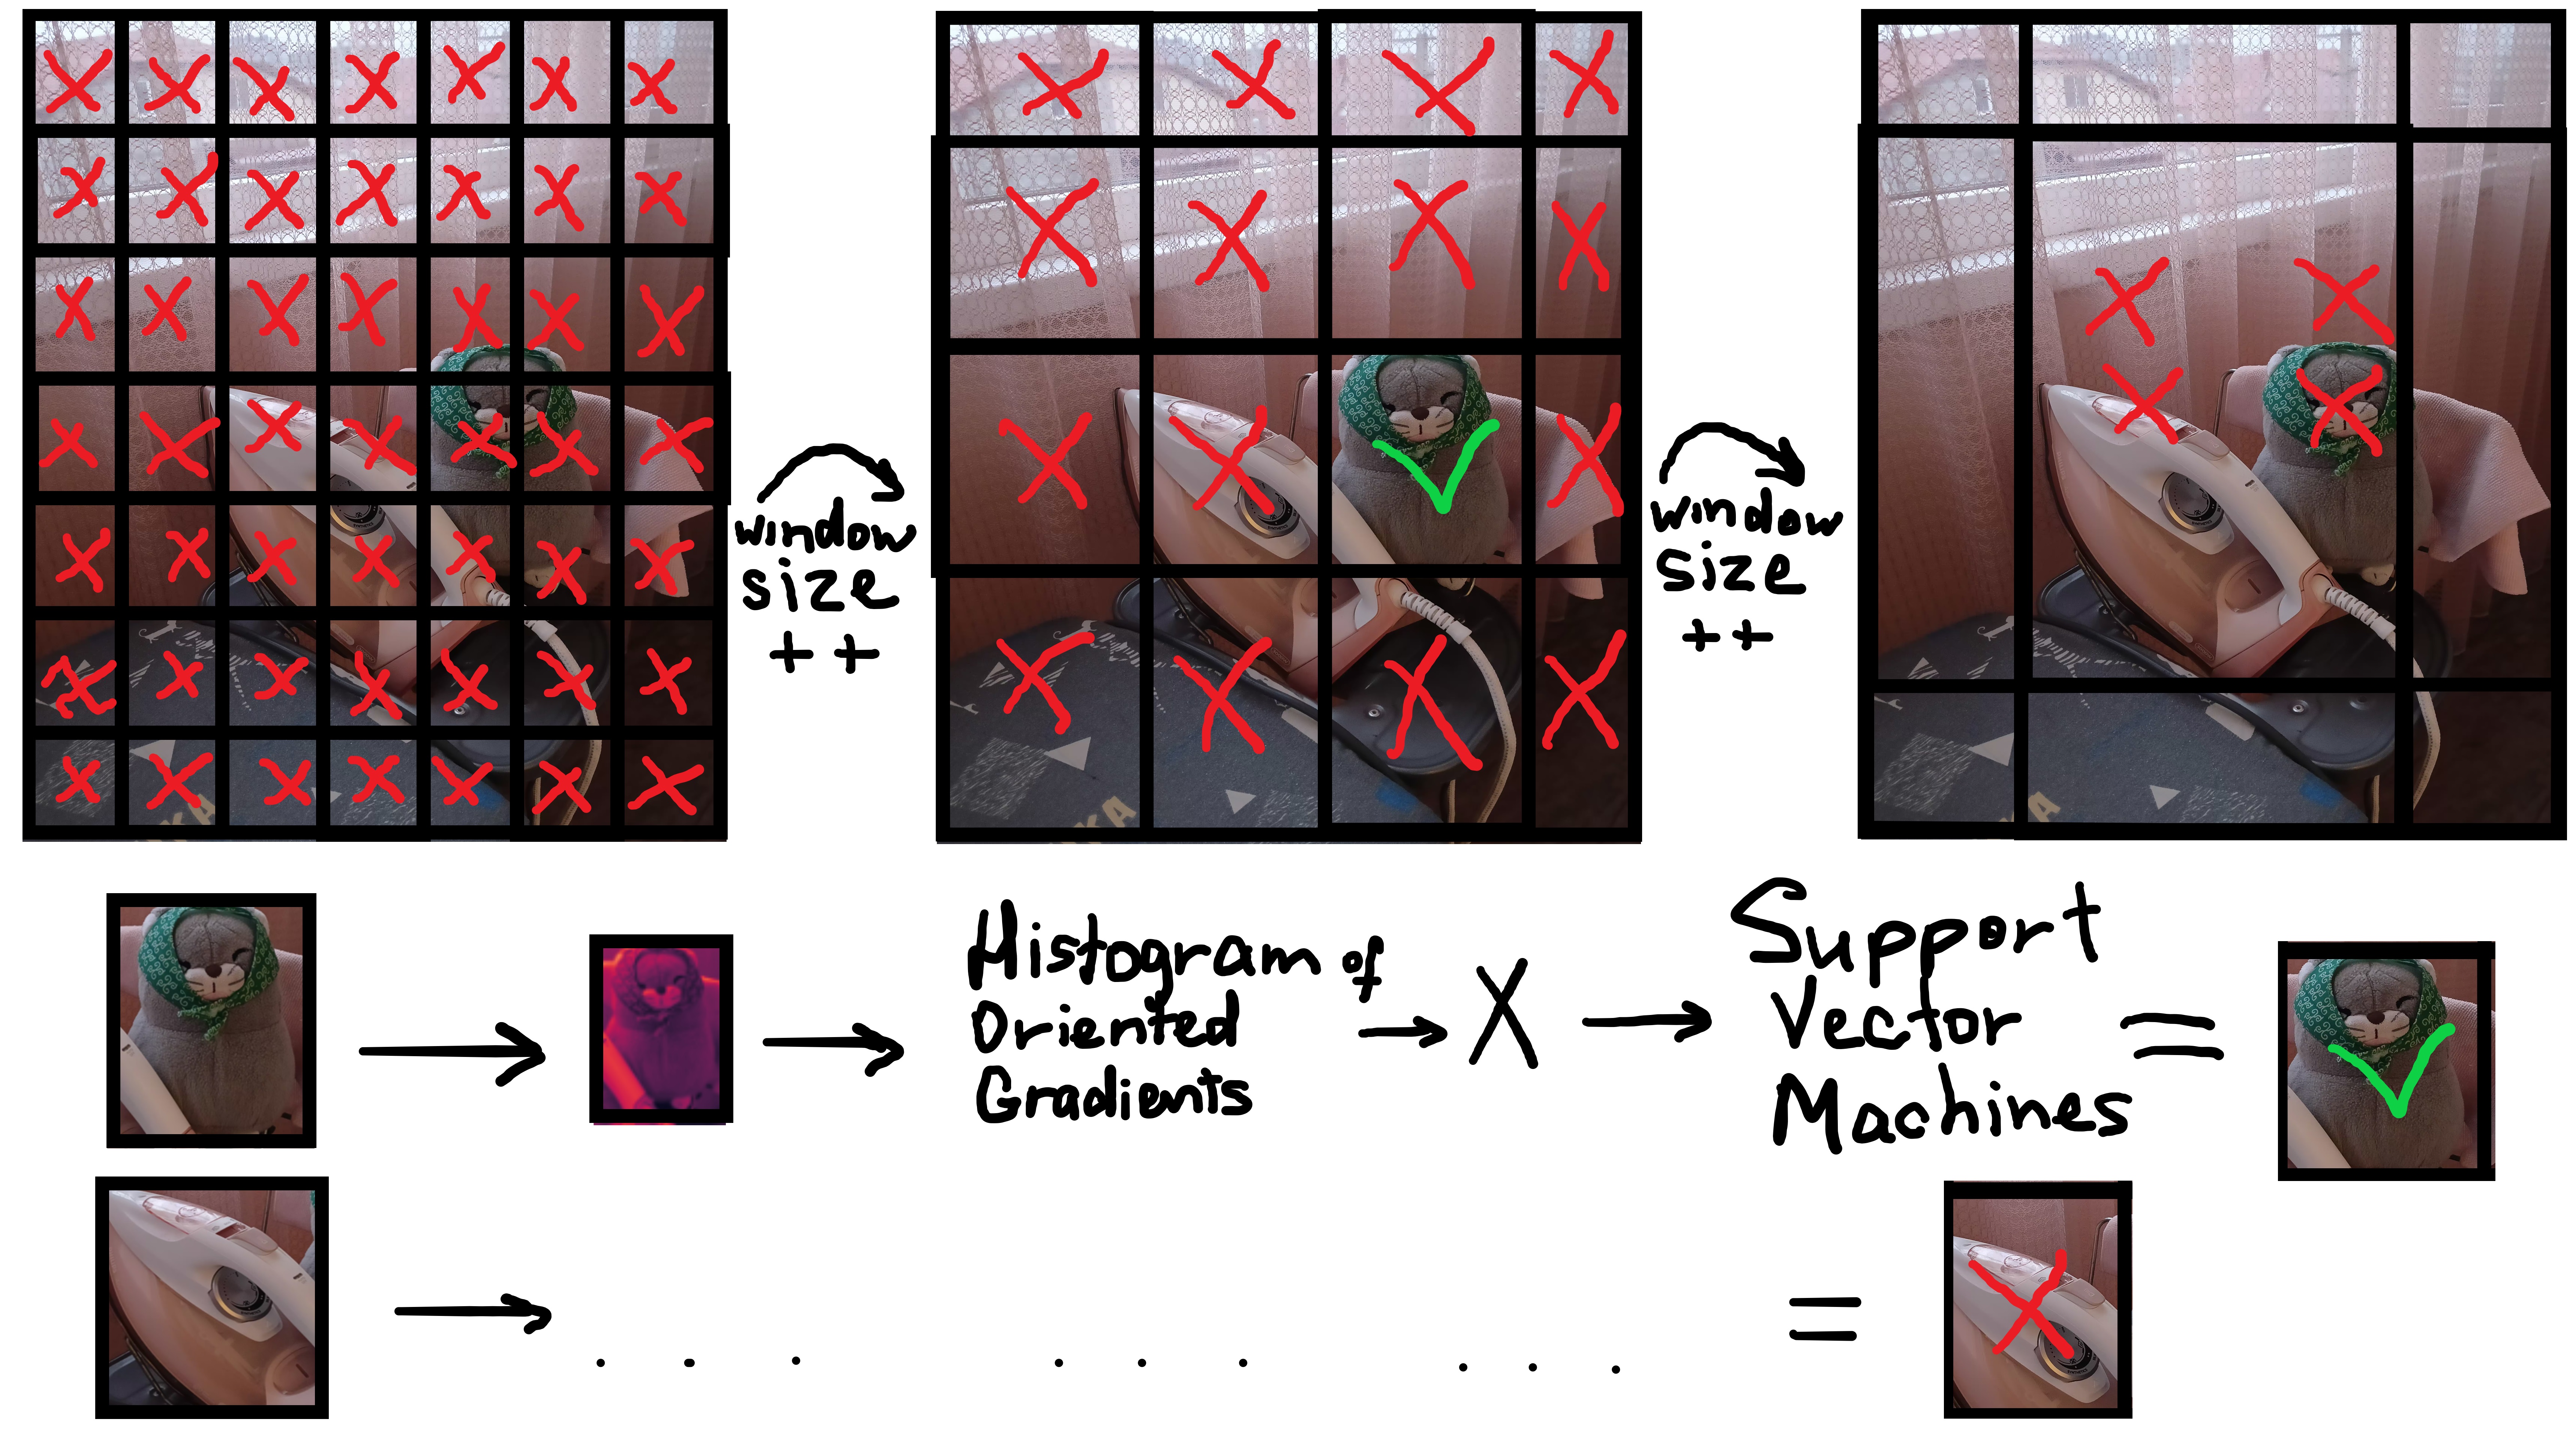 window
size
++
window
size
++
Histogram of
Oriented
Gradients
X
Support
Vector
Machines
=
=
KA